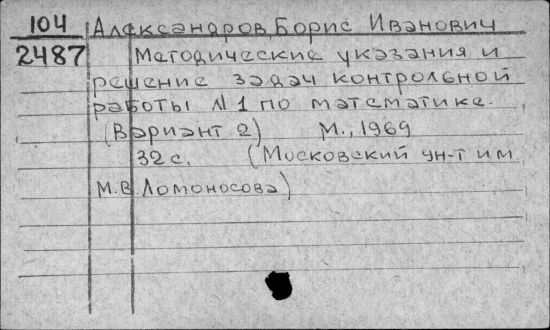 104 Александров, Борис Иванович
2487 Методические указания и
решение задач контрольной
работы №1 по математике.
(Вариант 2) М., 1969
32 с. (Московский ун-т им
М.В. Ломоносова)